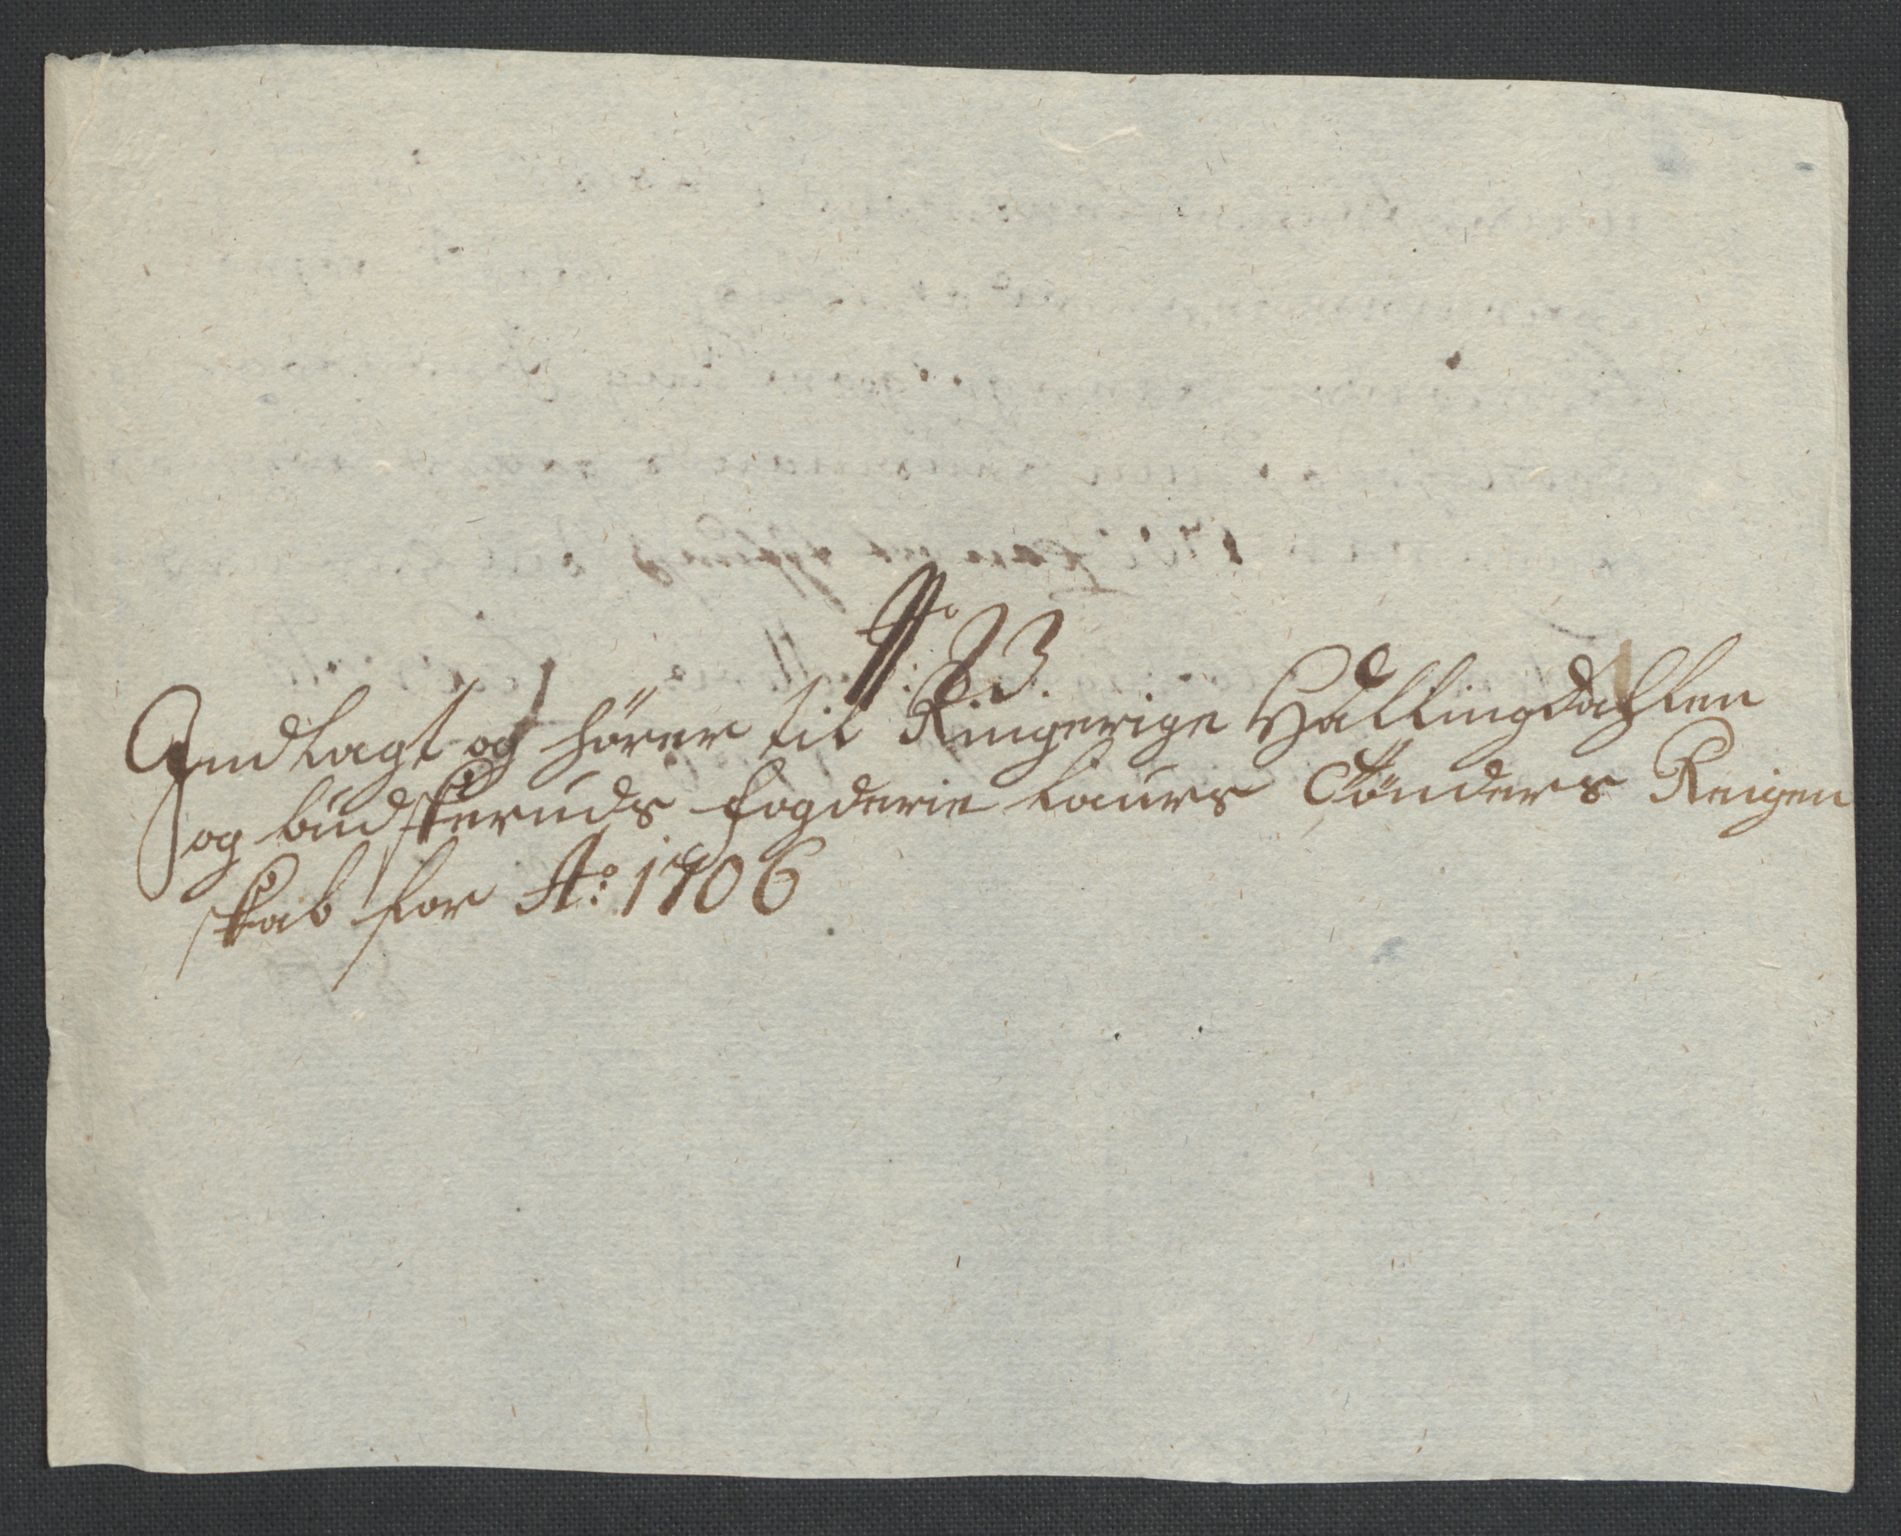 No: 23.
Indlagt og hører til Ringerige Hallingdahlen
og budskeruds fogderie Laurs Tønders Reigen
skab for Ao: 1706